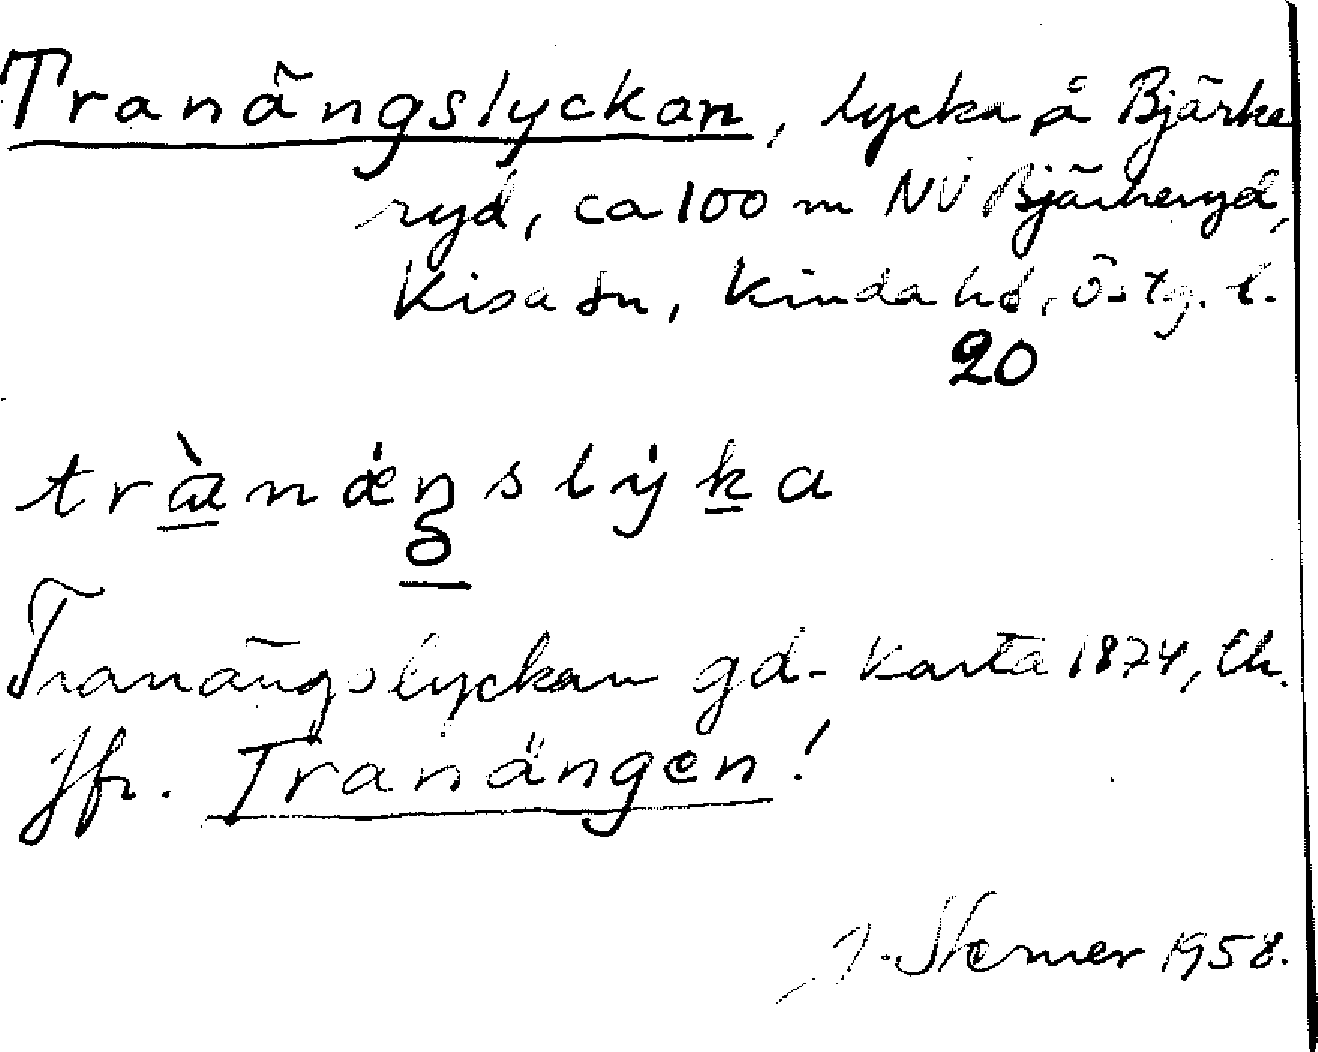 Tranängslyckan, lycka å Bjärke
ryd, ca 100 m NV Bjärkeryd,
Kisa sn, Kinda hd, Östg. l.
20
Tranängslyckan gd. Karta 1874, Ch.
Jfr. Tranängen!
J. Sterner 1958.